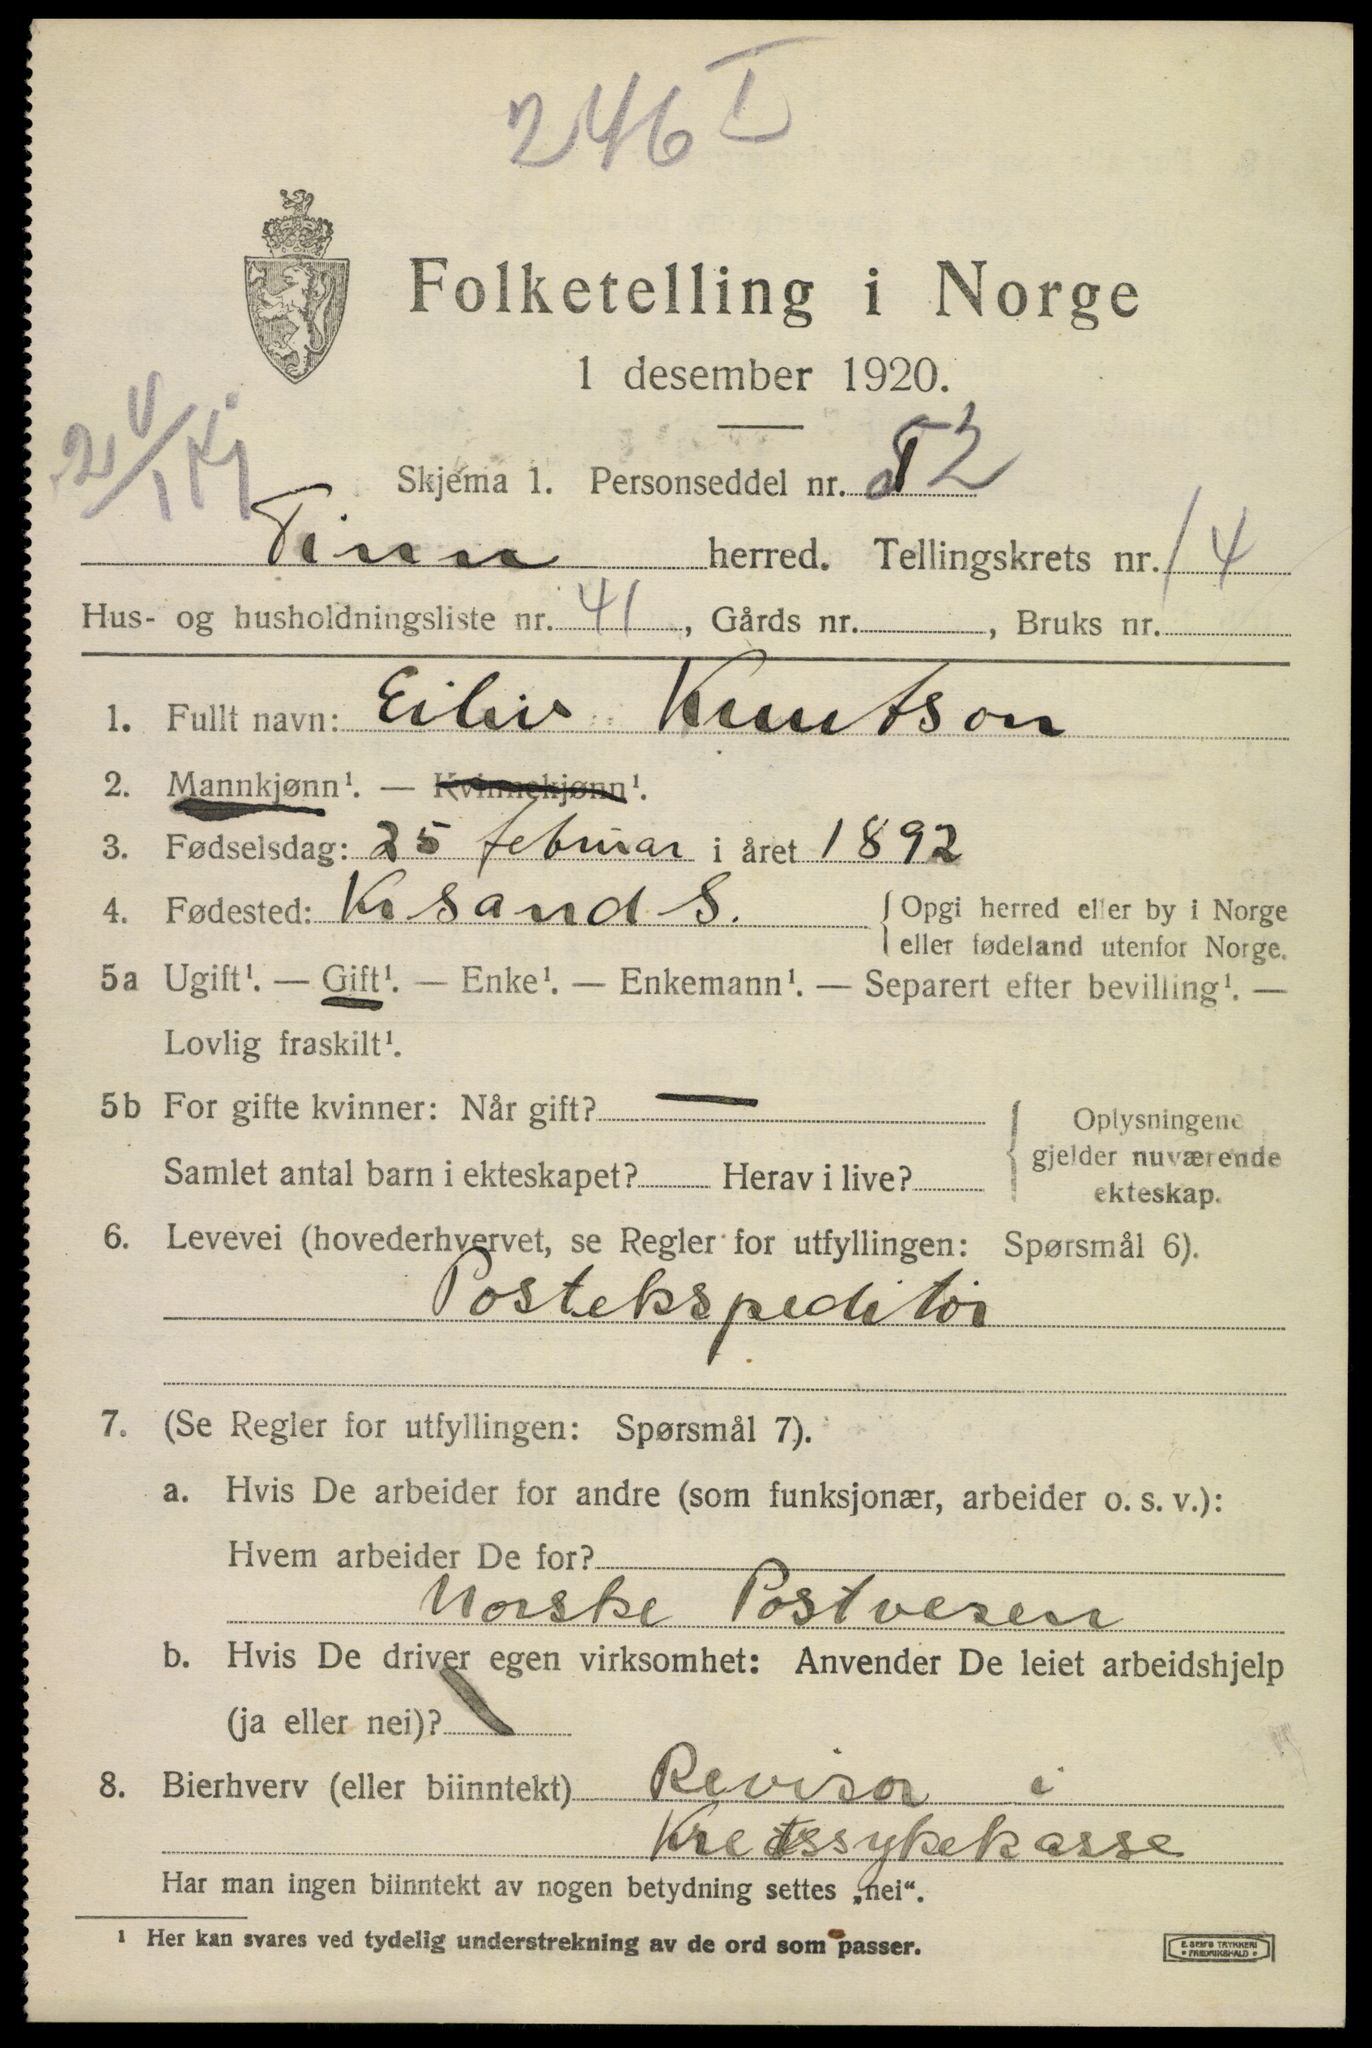 246 I
Folketelling i Norge
1 desember 1920.
Skjema 1. Personseddel nr. 2
Tinn herred. Tellingskrets nr. 14
Hus- og husholdningsliste nr. 41, Gårds nr. , Bruks nr.
1. Fullt navn: Eiliv Knutson
2. Mannkjønn¹. — Kvinnekjønn¹.
3. Fødselsdag: 25 februar i året 1892
4. Fødested: Krsand S. { Opgi herred eller by i Norge
eller fødeland utenfor Norge.
5a Ugift¹. — Gift¹. — Enke¹. — Enkemann¹. — Separert efter bevilling¹. —
Lovlig fraskilt¹.
5b For gifte kvinner: Når gift? —
Samlet antal barn i ekteskapet? Herav i live?
{ Oplysningene
gjelder nuværende
ekteskap.
6. Levevei (hovederhvervet, se Regler for utfyllingen: Spørsmål 6).
Postekspeditør
7. (Se Regler for utfyllingen: Spørsmål 7).
a. Hvis De arbeider for andre (som funksjonær, arbeider o. s. v.):
Hvem arbeider De for?
Norske Postvesen
b. Hvis De driver egen virksomhet: Anvender De leiet arbeidshjelp
(ja eller nei)?
8. Bierhverv (eller biinntekt) Revisor i
Kretssykekasse
Har man ingen biinntekt av nogen betydning settes „nei“.
¹ Her kan svares ved tydelig understrekning av de ord som passer.
E. SEMS TRYKKERI
FREDRIKSHALD